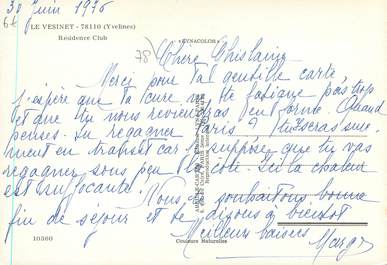 30 Juin 1976
LE VESINET - 78110 (Yvelines)
Résidence Club
"GYNACOLOR"
Chère Ghislaine
Merci pour ta gentille carte
j'espère que ta cure ne te fatigue pas trop
et que tu nous reviendras en forme Quand
penses-tu regagner Paris - Tu seras sure-
ment en transit car je suppose que tu vas
regagner sous peu la côte. Ici la chaleur
est suffocante.
Nous te souhaitons bonne
fin de séjour et te disons à bientôt
Meilleurs baisers
10360
Couleurs Naturelles